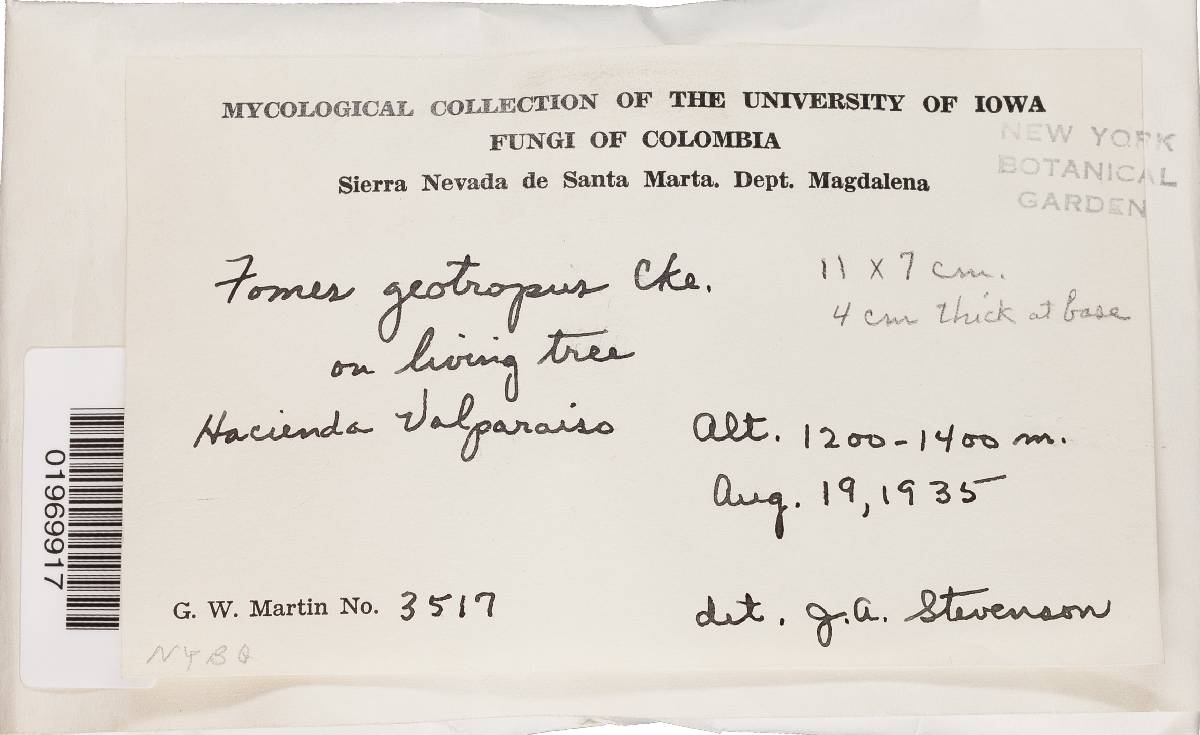 MYCOLOGICAL COLLECTION OF THE UNIVERSITY OF IOWA
FUNGI OF COLOMBIA
Sierra Nevada de Santa Marta. Dept. Magdalena
NEW YORK
BOTANICAL
GARDEN
Fomes geotropus Cke.
11 x 7 cm.
4 cm thick at base
on living tree
Hacienda Valparaiso
Alt. 1200-1400 m.
Aug. 19, 1935
01969917
G. W. Martin No. 3517
det. J.A. Stevenson
NYBG